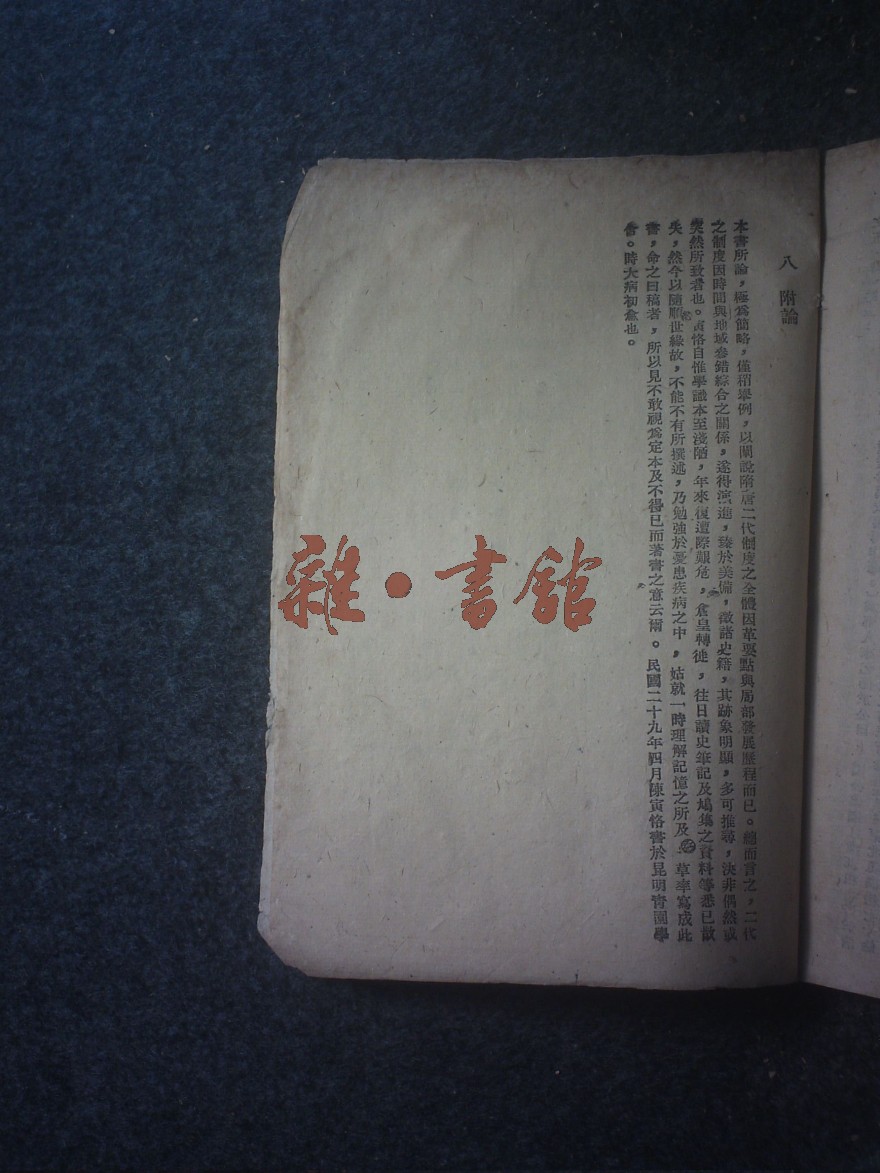 八 附論
本書所論，極爲簡略，僅稍舉例，以闡說隋唐二代制度之全體因革要點與局部發展歷程而已。總而言之，二代
之制度因時間與地域參錯綜合之關係，遂得演進，臻於美備，徵諸史籍，其跡象明顯，多可推尋，決非偶然或
突然所致者也。寅恪自惟學識本至淺陋，年來復遭際艱危，倉皇轉徙，往日讀史筆記及鳩集之資料等悉已散
失，然今以隨順世緣故，不能不有所撰述，乃勉強於憂患疾病之中，姑就一時理解記憶之所及，草率寫成此
書，命之曰稿者，所以見不敢視爲定本及不得已而著書之意云爾。民國二十九年四月陳寅恪書於昆明青園學
舍。時大病初愈也。
雜·書館